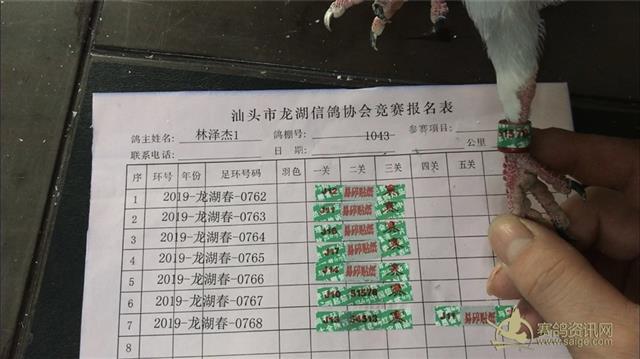 汕头市龙湖信鸽协会竞赛报名表
鸽主姓名: 林泽杰1 鸽棚号: 1043 参赛项目:
联系电话: 日期: 公里
序 环号 年份 足环号码 羽色 一关 二关 三关 四关 五关
1 2019-龙湖春-0762 J12 易碎贴纸 寒
2 2019-龙湖春-0763 易碎贴纸 寒
3 2019-龙湖春-0764 易碎贴纸 寒
4 2019-龙湖春-0765 J17 易碎贴纸 寒
5 2019-龙湖春-0766 J14 易碎贴纸 寒
6 2019-龙湖春-0767 51578 寒
7 2019-龙湖春-0768 寒 J11 易碎贴纸
8
赛鸽资讯网
www.saige.com